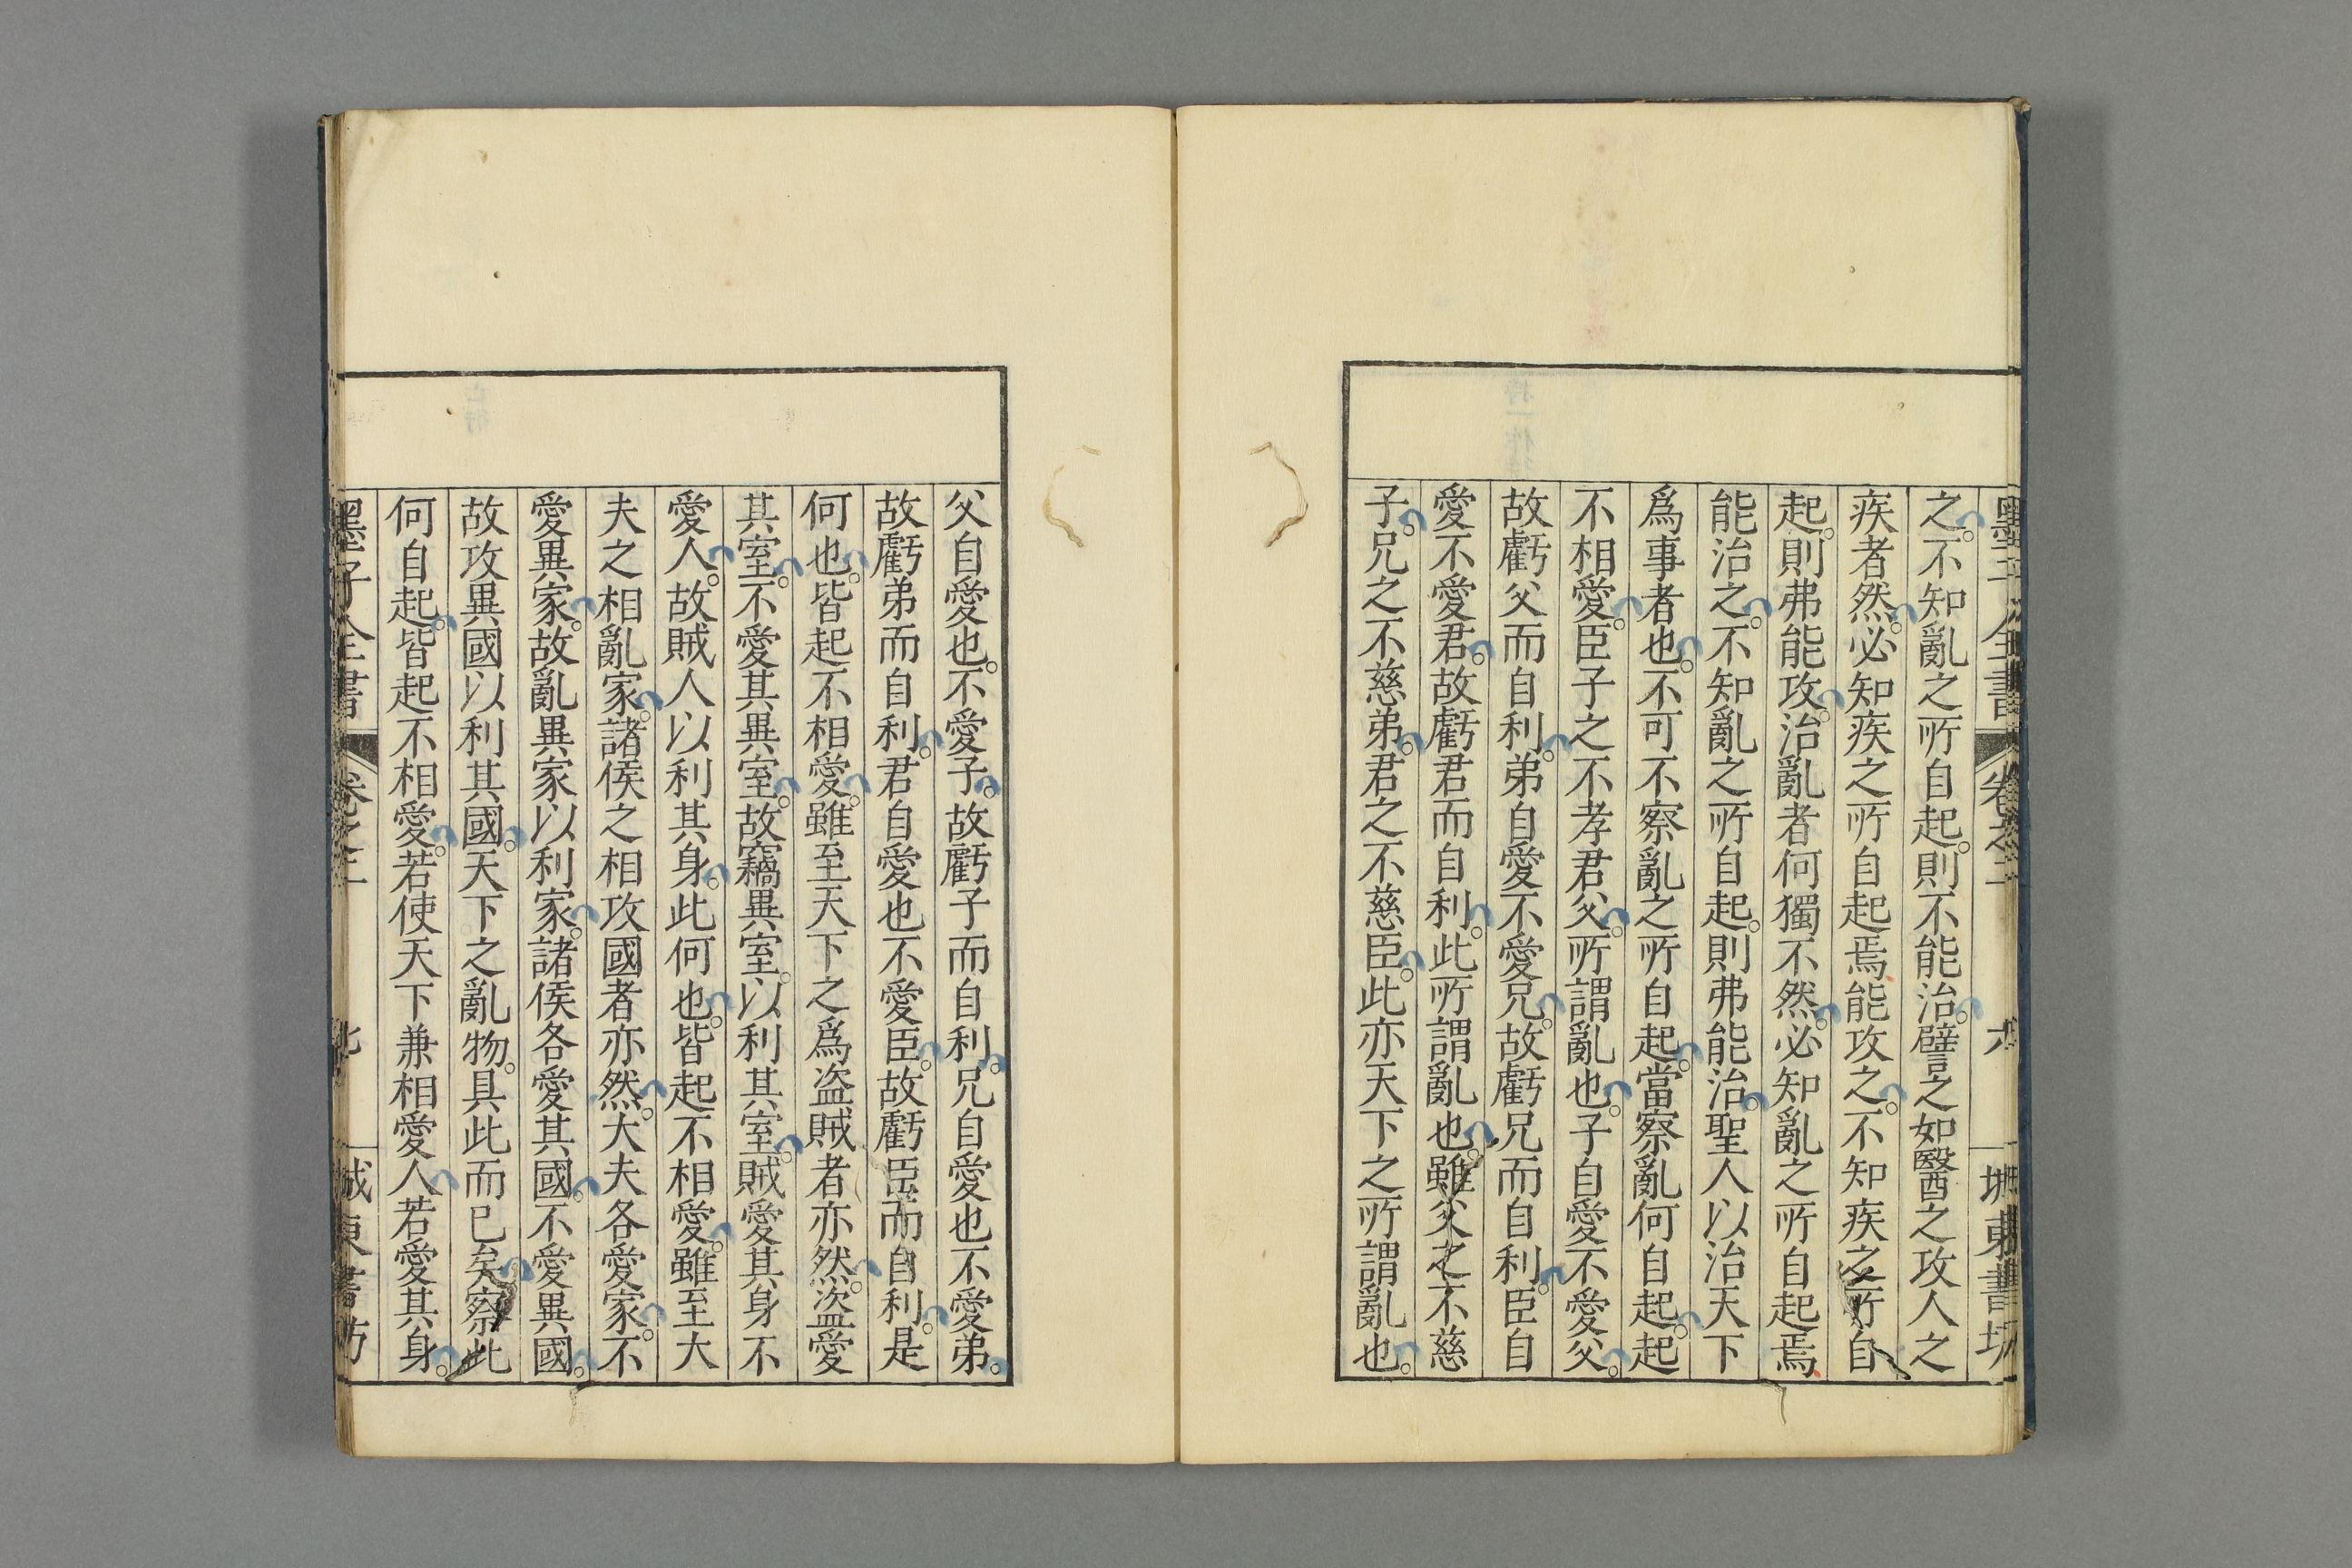 墨子全書 卷之二 六 城東書坊
之。不知亂之所自起。則不能治。譬之如醫之攻人之
疾者然。必知疾之所自起焉能攻之。不知疾之所自
起。則弗能攻。治亂者何獨不然。必知亂之所自起焉
能治之。不知亂之所自起。則弗能治。聖人以治天下
爲事者也。不可不察亂之所自起。當察亂何自起。起
不相愛。臣子之不孝君父。所謂亂也。子自愛不愛父。
故虧父而自利。弟自愛不愛兄。故虧兄而自利。臣自
愛不愛君。故虧君而自利。此所謂亂也。雖父之不慈
子。兄之不慈弟。君之不慈臣。此亦天下之所謂亂也。
父自愛也。不愛子。故虧子而自利。兄自愛也不愛弟。
故虧弟而自利。君自愛也不愛臣。故虧臣而自利。是
何也。皆起不相愛。雖至天下之爲盜賊者亦然。盜愛
其室。不愛其異室。故竊異室。以利其室。賊愛其身不
愛人。故賊人以利其身。此何也。皆起不相愛。雖至大
夫之相亂家。諸侯之相攻國者亦然。大夫各愛家。不
愛異家。故亂異家以利家。諸侯各愛其國。不愛異國。
故攻異國以利其國。天下之亂物。具此而已矣。察此
何自起。皆起不相愛。若使天下兼相愛人若愛其身。
墨子全書 卷之二 城東書坊